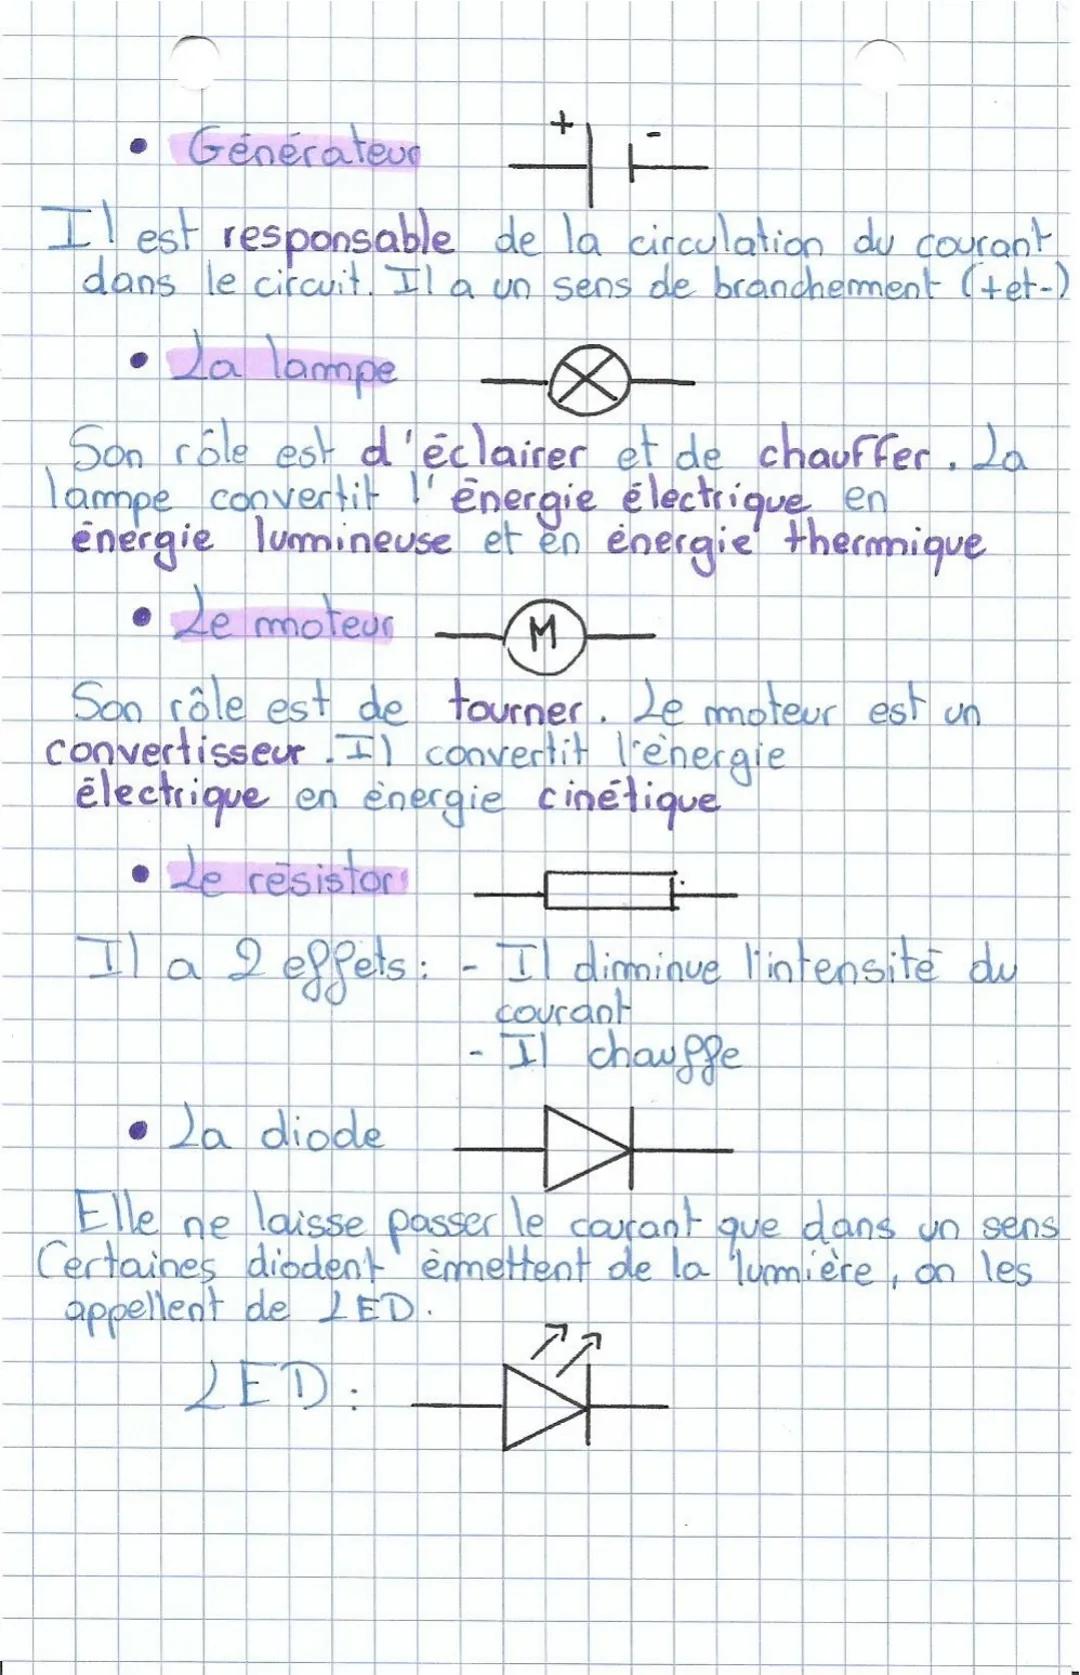 • Générateur + -
Il est responsable de la circulation du courant
dans le circuit. Il a un sens de branchement (+et-)
• La lampe
Son rôle est d'éclairer et de chauffer. La
lampe convertit l'énergie électrique en
énergie lumineuse et en énergie thermique
• Le moteur M
Son rôle est de tourner. Le moteur est un
convertisseur. Il convertit l'énergie
électrique en énergie cinétique
• Le résistor
Il a 2 effets : - Il diminue l'intensité du
courant
- Il chauffe
• La diode
Elle ne laisse passer le courant que dans un sens
Certaines diodent émettent de la lumière, on les
appellent de LED.
LED :